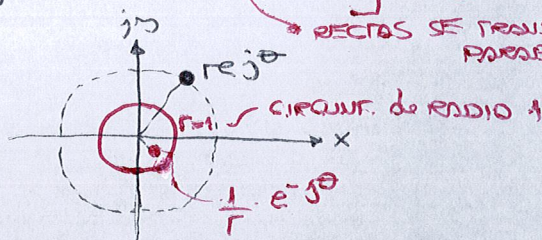 jy
RECTAS SE TRANS
PARA
re^jθ
r=1
CIRCUNF. de RADIO 1
x
1/r · e^-jθ